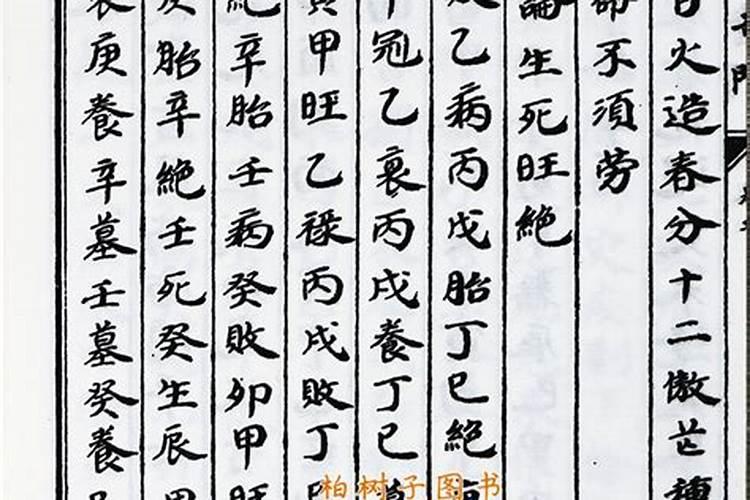 日火造春分十二傲芒種
命不須勞
論生死旺絕
敗乙病丙戊胎丁巳絕
冠乙衰丙戌養丁巳墓
寅甲旺乙祿丙戌敗丁
絕辛胎壬病癸敗卯甲旺
亥胎辛絕壬死癸生辰甲
衰庚養辛墓壬墓癸養
柏树子图书